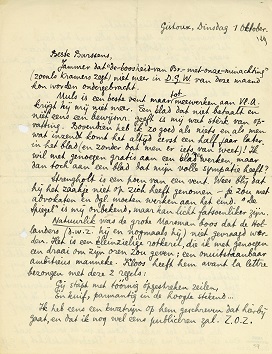 Gistoux, Dinsdag 1 October.
Beste Burssens,
Jammer dat "De boosheid van Dr. met-onze-minachting"
(zooals Kramers zegt) niet meer in D.G.W. van deze maand
kon worden ondergebracht.
Muls is een beste vent maar tot meewerken aan Vl. A.
krijgt hij mij niet meer. Een blad dat niet betaalt en
niet eens een bewijsnr. geeft is mij wat sterk van op-
vatting. Bovendien ken ik zoo goed als niets en als men
wat inzendt komt het altijd eerst een half jaar later
in het blad (en zonder dat men er iets van weet)! Ik
wil met genoegen gratis aan een blad werken, maar
dan toch aan een blad dat mijn volle sympathie heeft?
Strengholt is een poen van een vent. Wees blij dat
hij het zaakje niet op zich heeft genomen – je zou met
advokaten en dgl. moeten werken aan het eind. "De
Spiegel" is mij onbekend, maar kan licht fatsoenlijker zijn.
Natuurlijk was de groote Marsman boos dat de Hol-
landers (d.w.z. hij en nogmaals hij) niet gevraagd wer-
den. Het is een kleinzielige rotkerel, die ik met genoegen
een draai om zijn oren zou geven; een onuitstaanbaar
ambitieus manneke. Kloos heeft hem avant la lettre
bezongen met deze 2 regels:
Gij stapt met toornig opgestreken zeilen,
en kuift, parmantig in de hoogte stekend...
Ik heb eens een kwatrijn op hem geschreven dat hierbij
gaat, en dat ik nog wel eens publiceeren zal. Z.O.Z.